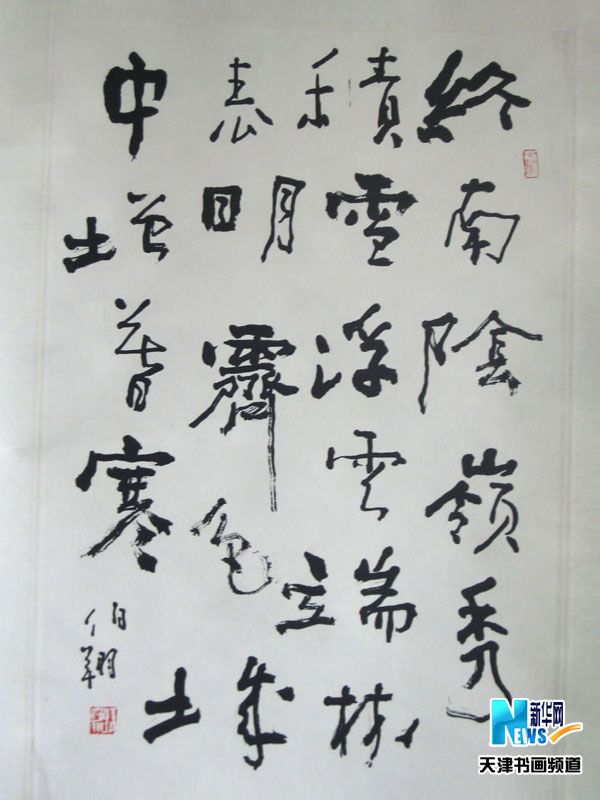 終南陰嶺秀
積雪浮云端林
表明霽色城
中增暮寒
伯翔
新华网
NEWS
天津书画频道